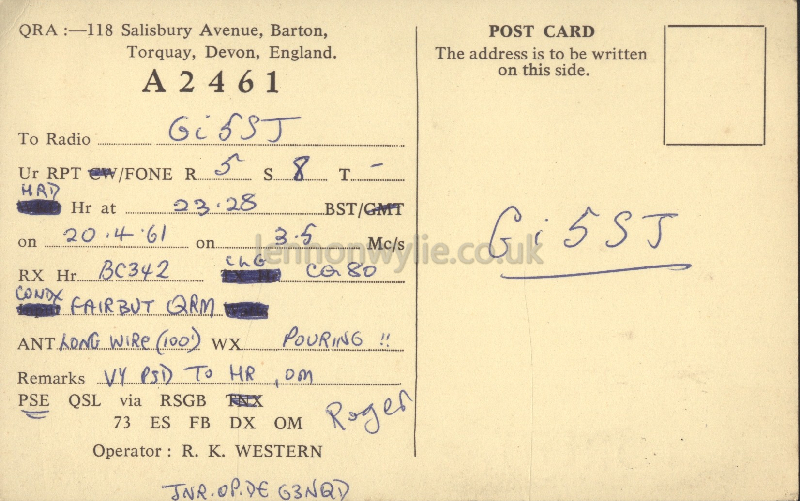 QRA :—118 Salisbury Avenue, Barton,
Torquay, Devon, England.
A2461
To Radio Gi5SJ
Ur RPT CW/FONE R 5 S 8 T -
HRD
Hr at 23·28 BST/GMT
on 20·4·61 on 3·5 Mc/s
RX Hr BC342 CLG CQ80
CONDX FAIR BUT QRM
ANT LONG WIRE (100') WX POURING !!
Remarks VY PSD TO HR, OM
PSE QSL via RSGB TNX
73 ES FB DX OM
Roger
Operator: R. K. WESTERN
JNR. OP. DE G3NQD
POST CARD
The address is to be written
on this side.
Gi5SJ
lennonwylie.co.uk